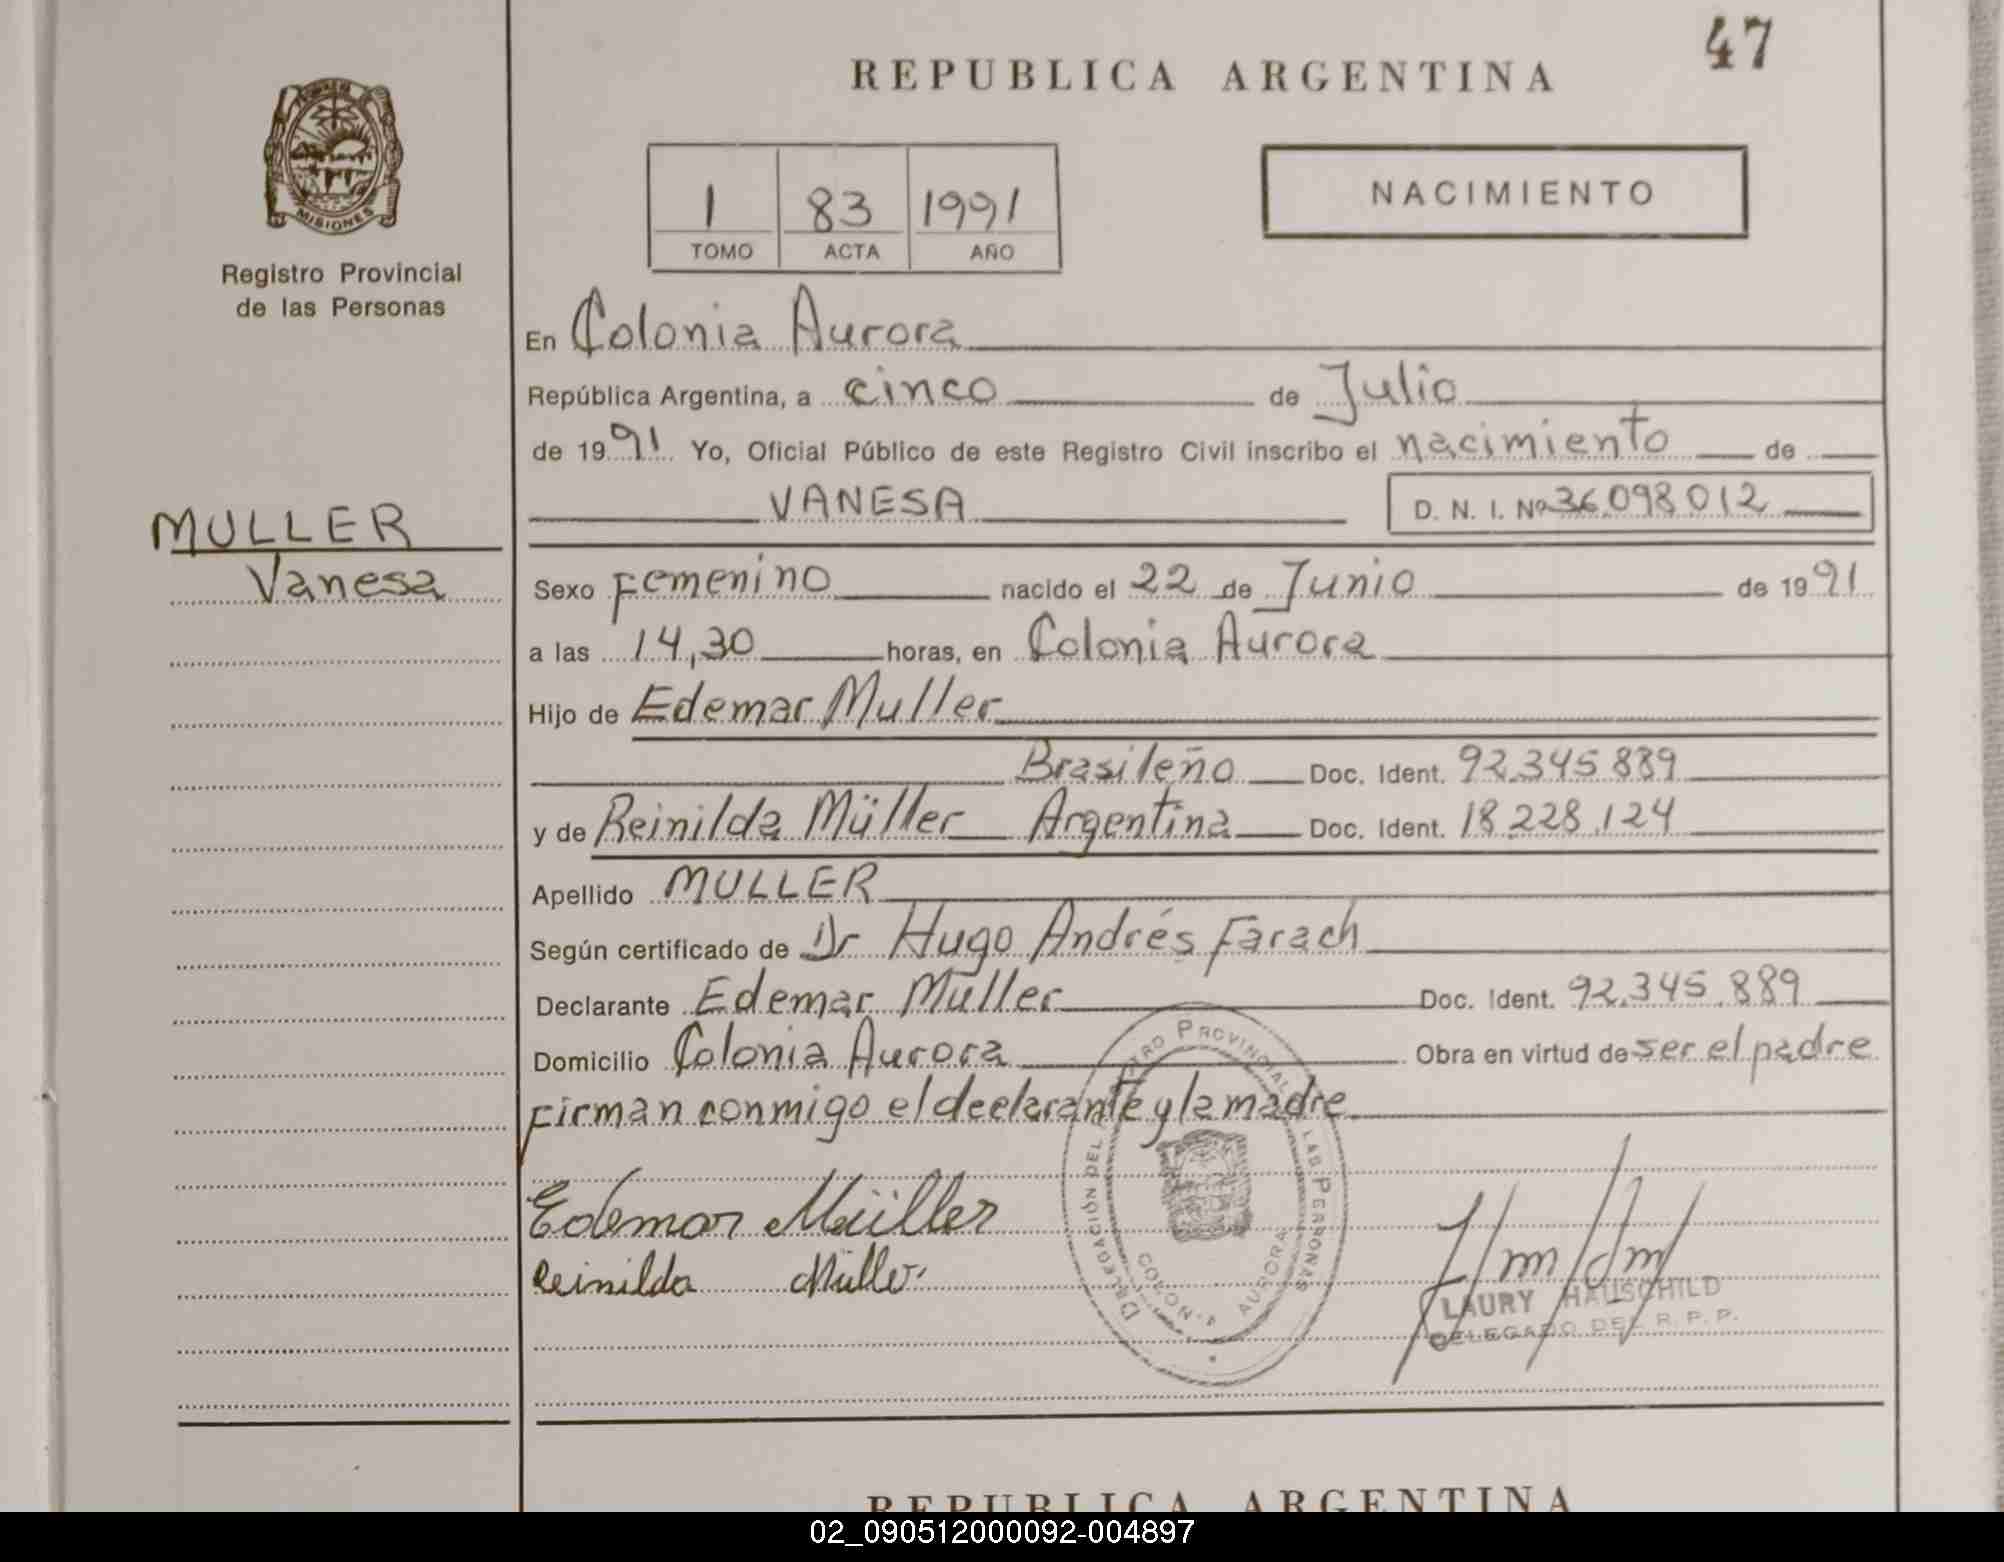 47
REPUBLICA ARGENTINA
MISIONES
Registro Provincial
de las Personas
1 83 1991
TOMO ACTA AÑO
NACIMIENTO
En Colonia Aurora
República Argentina, a cinco de Julio
de 1991 Yo, Oficial Público de este Registro Civil inscribo el nacimiento de
VANESA D. N. I. Nº 36.098.012
MULLER
Vanesa
Sexo Femenino nacido el 22 de Junio de 1991
a las 14,30 horas, en Colonia Aurora
Hijo de Edemar Muller
Brasileño Doc. Ident. 92.345.889
y de Reinilda Müller Argentina Doc. Ident. 18.228.124
Apellido MULLER
Según certificado de Dr Hugo Andrés Farach
Declarante Edemar Muller Doc. Ident. 92.345.889
Domicilio Colonia Aurora Obra en virtud de ser el padre
Firman conmigo el declarante y la madre
Edemar Müller
Reinilda Müller
DELEGACIÓN DEL REGISTRO PROVINCIAL DE LAS PERSONAS
COLONIA AURORA
LAURY HAUSCHILD
DELEGADO DEL R. P. P.
REPUBLICA ARGENTINA
02_090512000092-004897